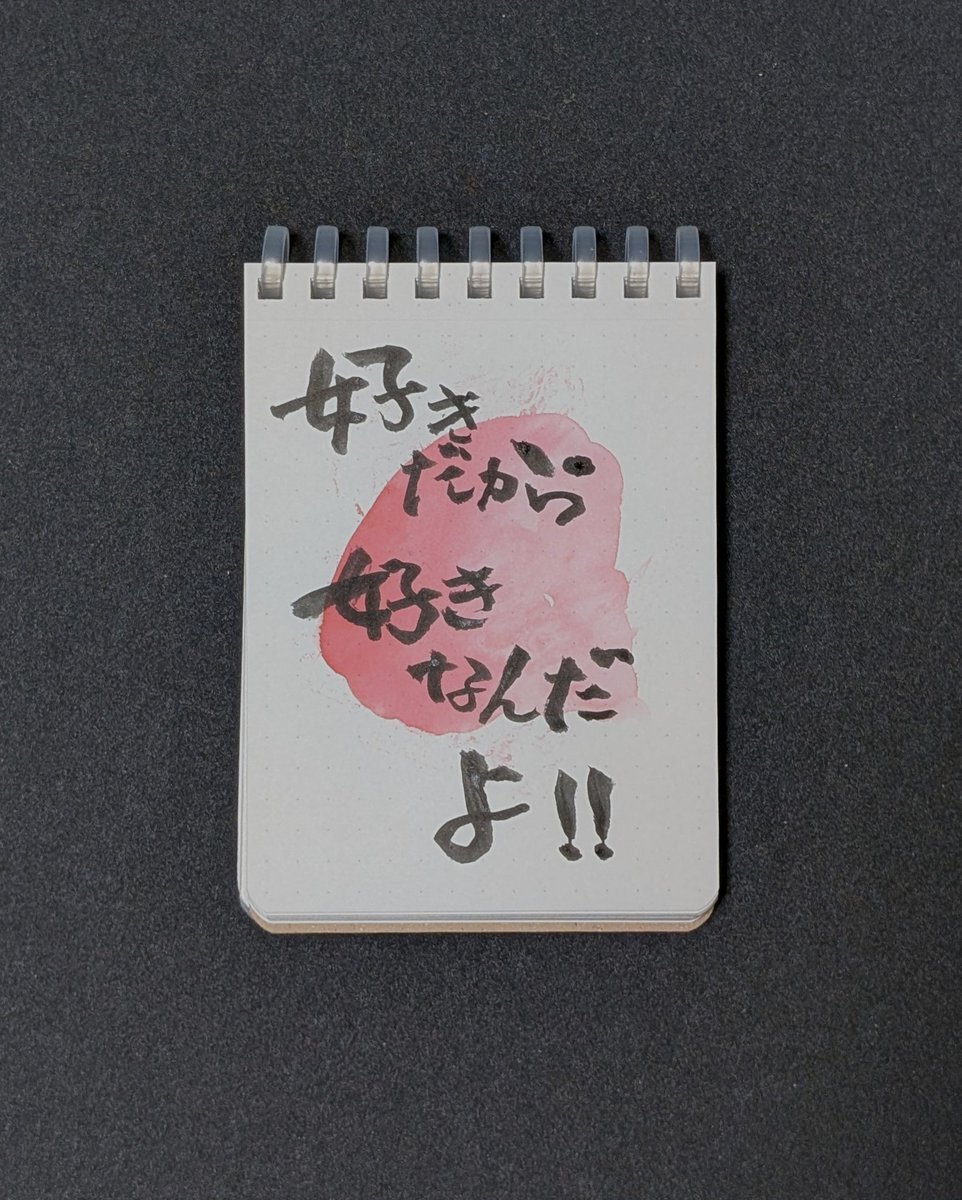 好き
だから
好き
なんだ
よ!!